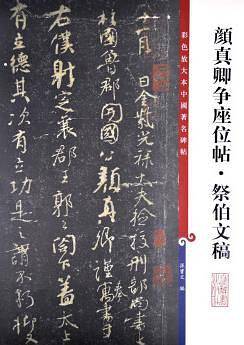 顏真卿争座位帖·祭伯文稿
彩色放大本中國著名碑帖
孫寶文 編
十一月 日金紫光祿大夫檢校刑部尚書上
柱國魯郡開國公顏真卿謹奉書于
右僕射定襄郡王郭公閤下蓋太上
有立德其次有立功是之謂不朽抑又